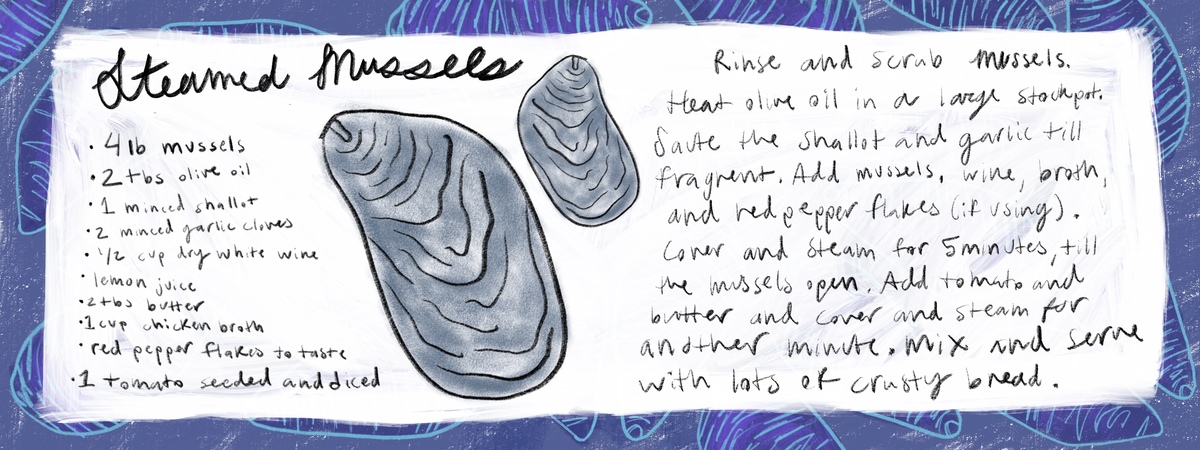 Steamed Mussels
· 4 lb mussels
· 2 tbs olive oil
· 1 minced shallot
· 2 minced garlic cloves
· 1/2 cup dry white wine
· lemon juice
· 2 tbs butter
· 1 cup chicken broth
· red pepper flakes to taste
· 1 tomato seeded and diced
Rinse and scrub mussels.
Heat olive oil in a large stockpot.
Saute the shallot and garlic till
fragrent. Add mussels, wine, broth,
and red pepper flakes (if using).
Cover and steam for 5 minutes, till
the mussels open. Add tomato and
butter and cover and steam for
another minute. Mix and serve
with lots of crusty bread.